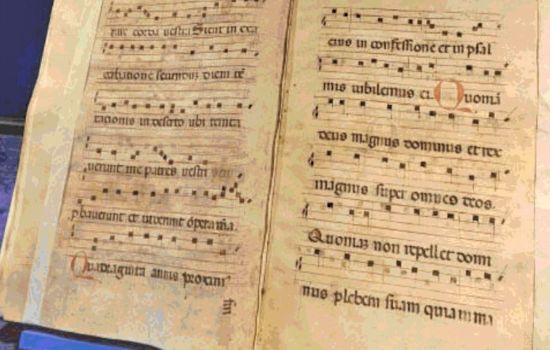 rare corda vestra Sicut in exa
cerbatione secundum diem te
tationis in deserto ubi tenta
uerunt me patres vestri
probaverunt et viderunt opera mea.
Quadraginta annis proximus
eius in confessione et in psal
mis iubilemus ei. Quoniam
deus magnus dominus et rex
magnus super omnes deos.
Quoniam non repellet domi
nus plebem suam quia in ma